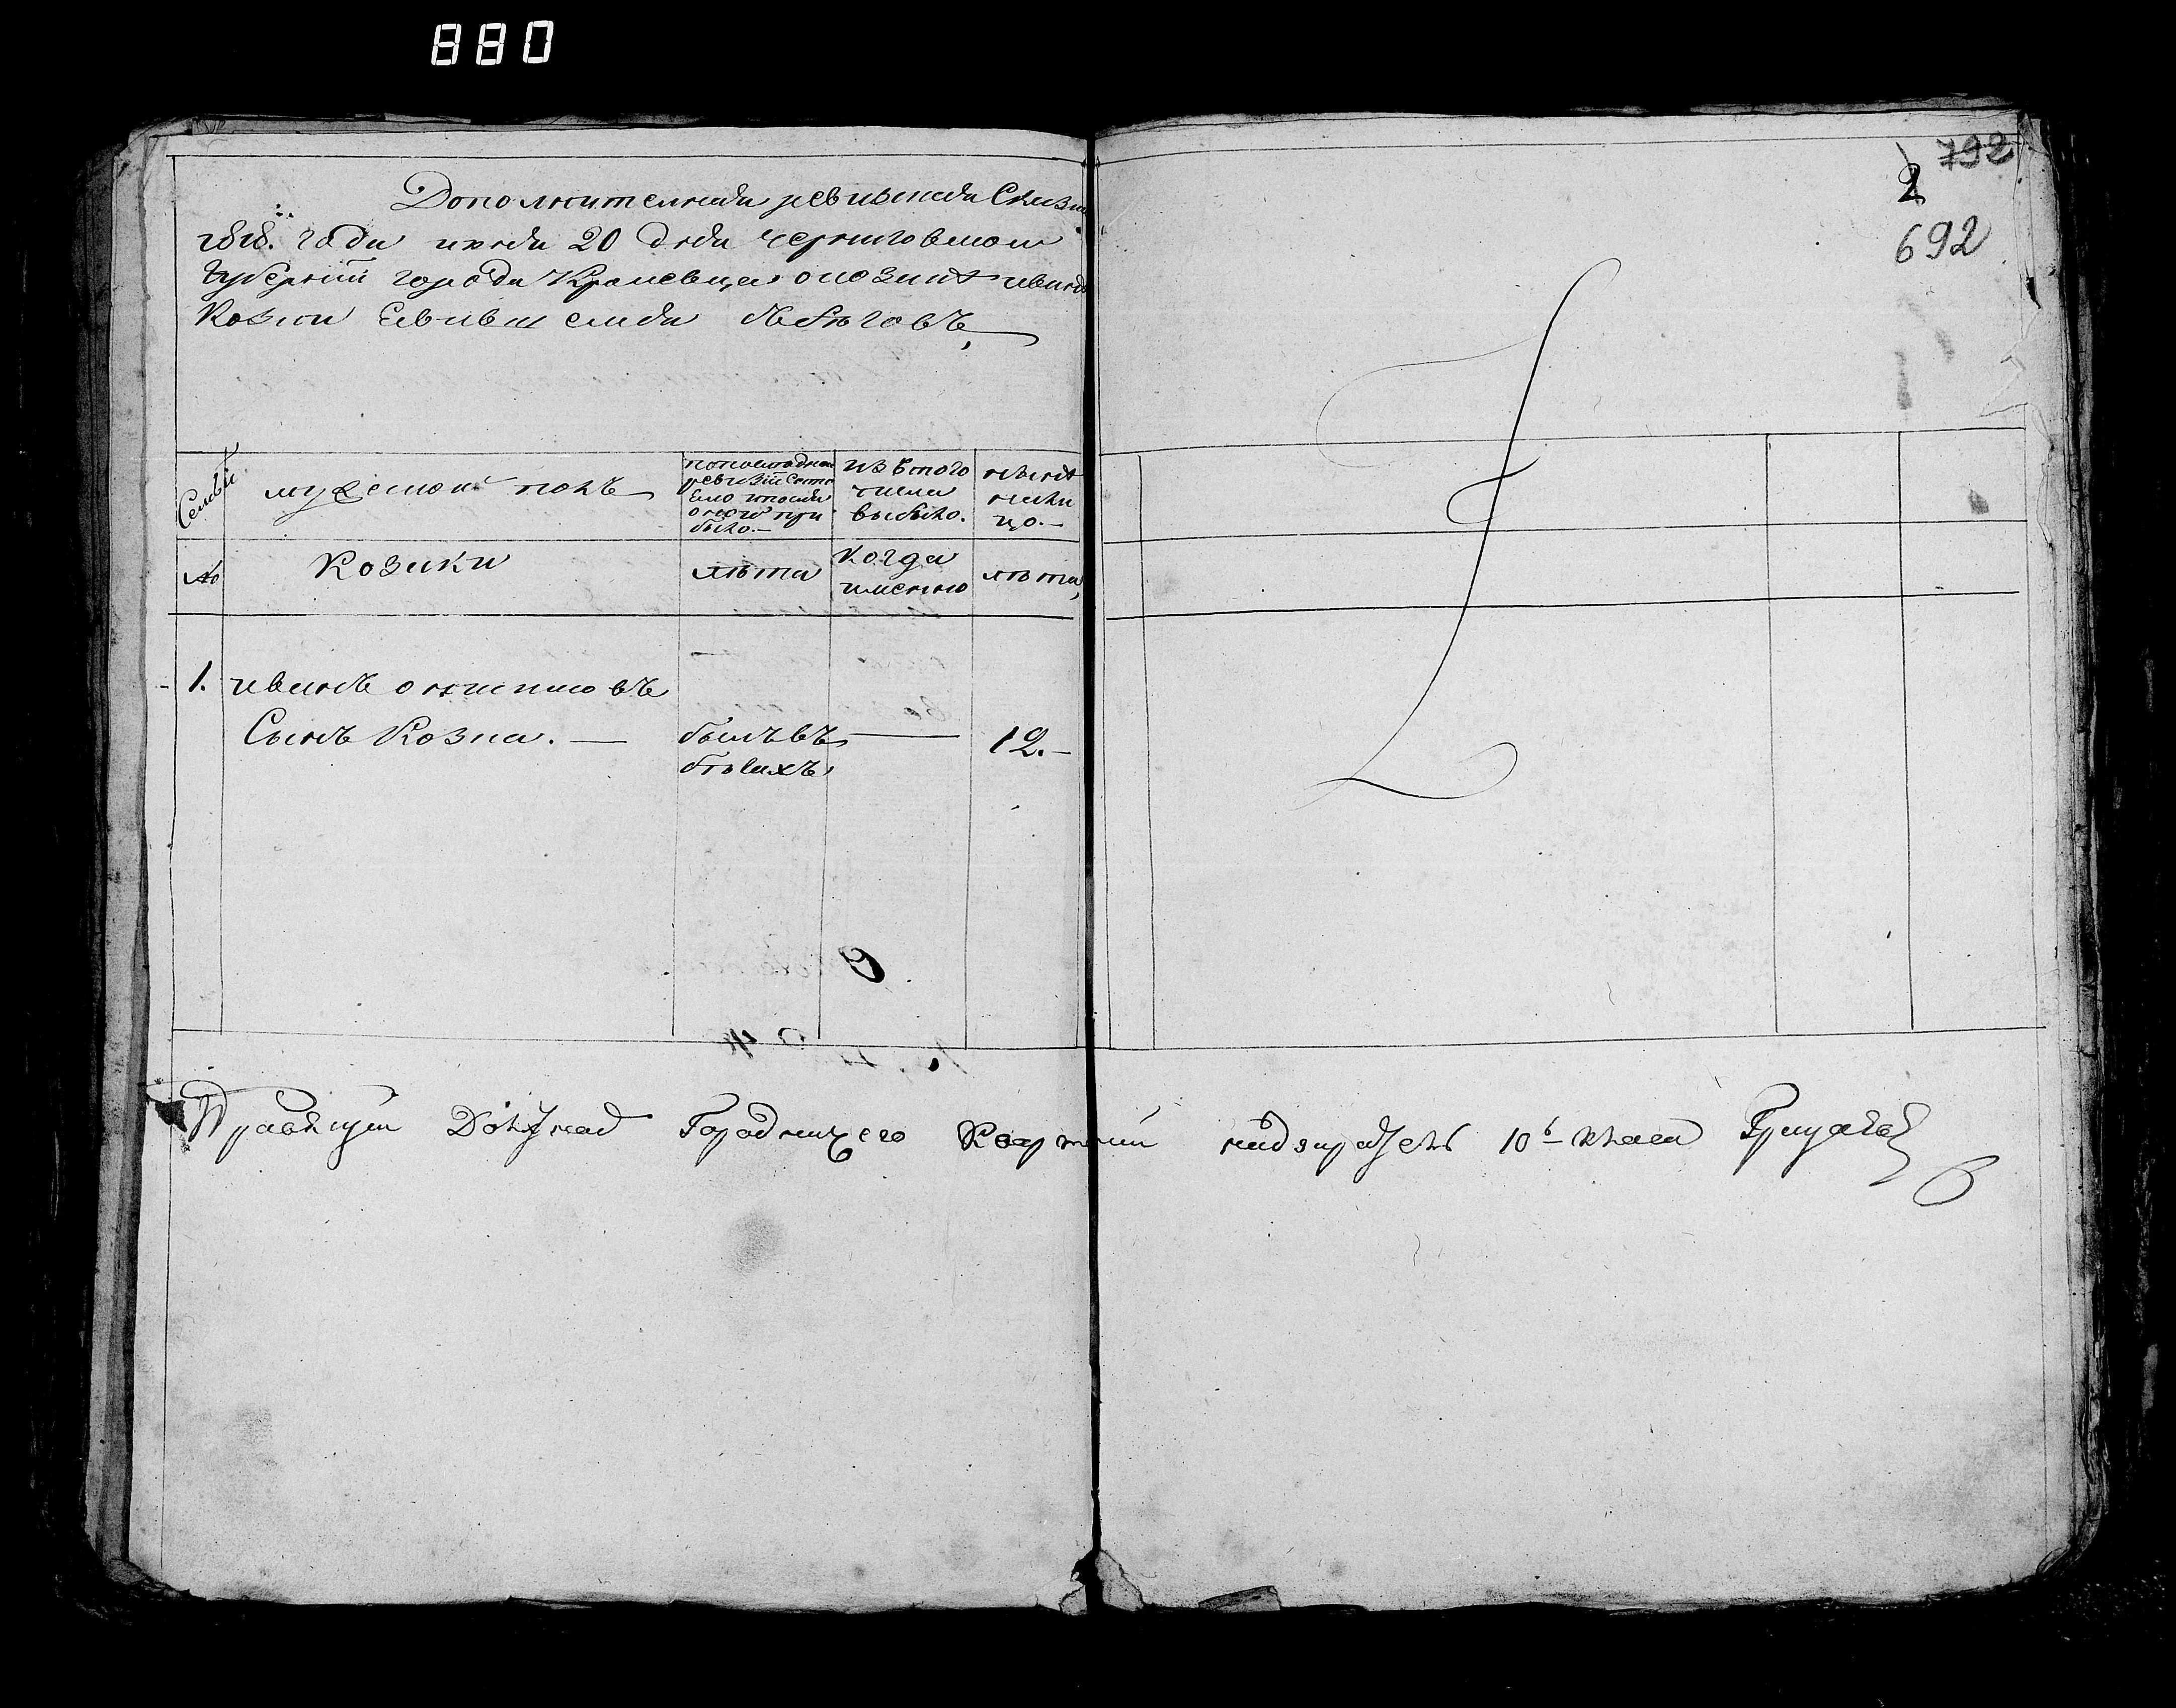 880
792
2
692
Дополнителная ревизская Сказка
1818. года июня 20 дня Черниговской
Губернїи города Кролевца о козаке иване
Козки бывшемъ въ бѣгахъ
Семьи
мужескои полъ
по последней ревизїи состояло и после оной прибыло.
изъ того числа выбыло.
ныне на лицо.
№
Козаки
лета
когда именно
лета
1. иванъ
Сынъ Козка. —
былъ въ бѣгахъ
12. —
Правящий Должность Городничего Квартальный надзиратель 10й класса